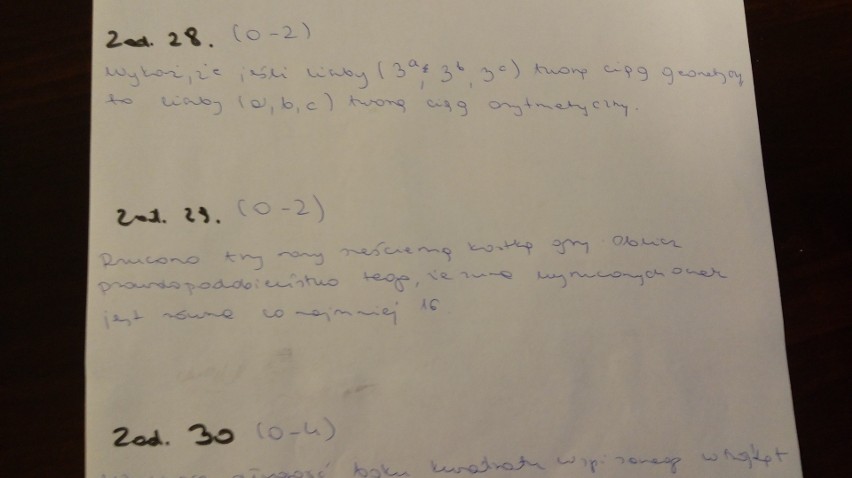 Zad. 28. (0-2)
Wykaż, że jeśli liczby (3^a, 3^b, 3^c) tworzą ciąg geometryczny
to liczby (a, b, c) tworzą ciąg arytmetyczny.
Zad. 29. (0-2)
Rzucono trzy razy sześcienną kostką gry. Oblicz
prawdopodobieństwo tego, że suma wyrzuconych oczek
jest równa co najmniej 16.
Zad. 30 (0-4)
długość boku kwadratu wpisanego w trójkąt